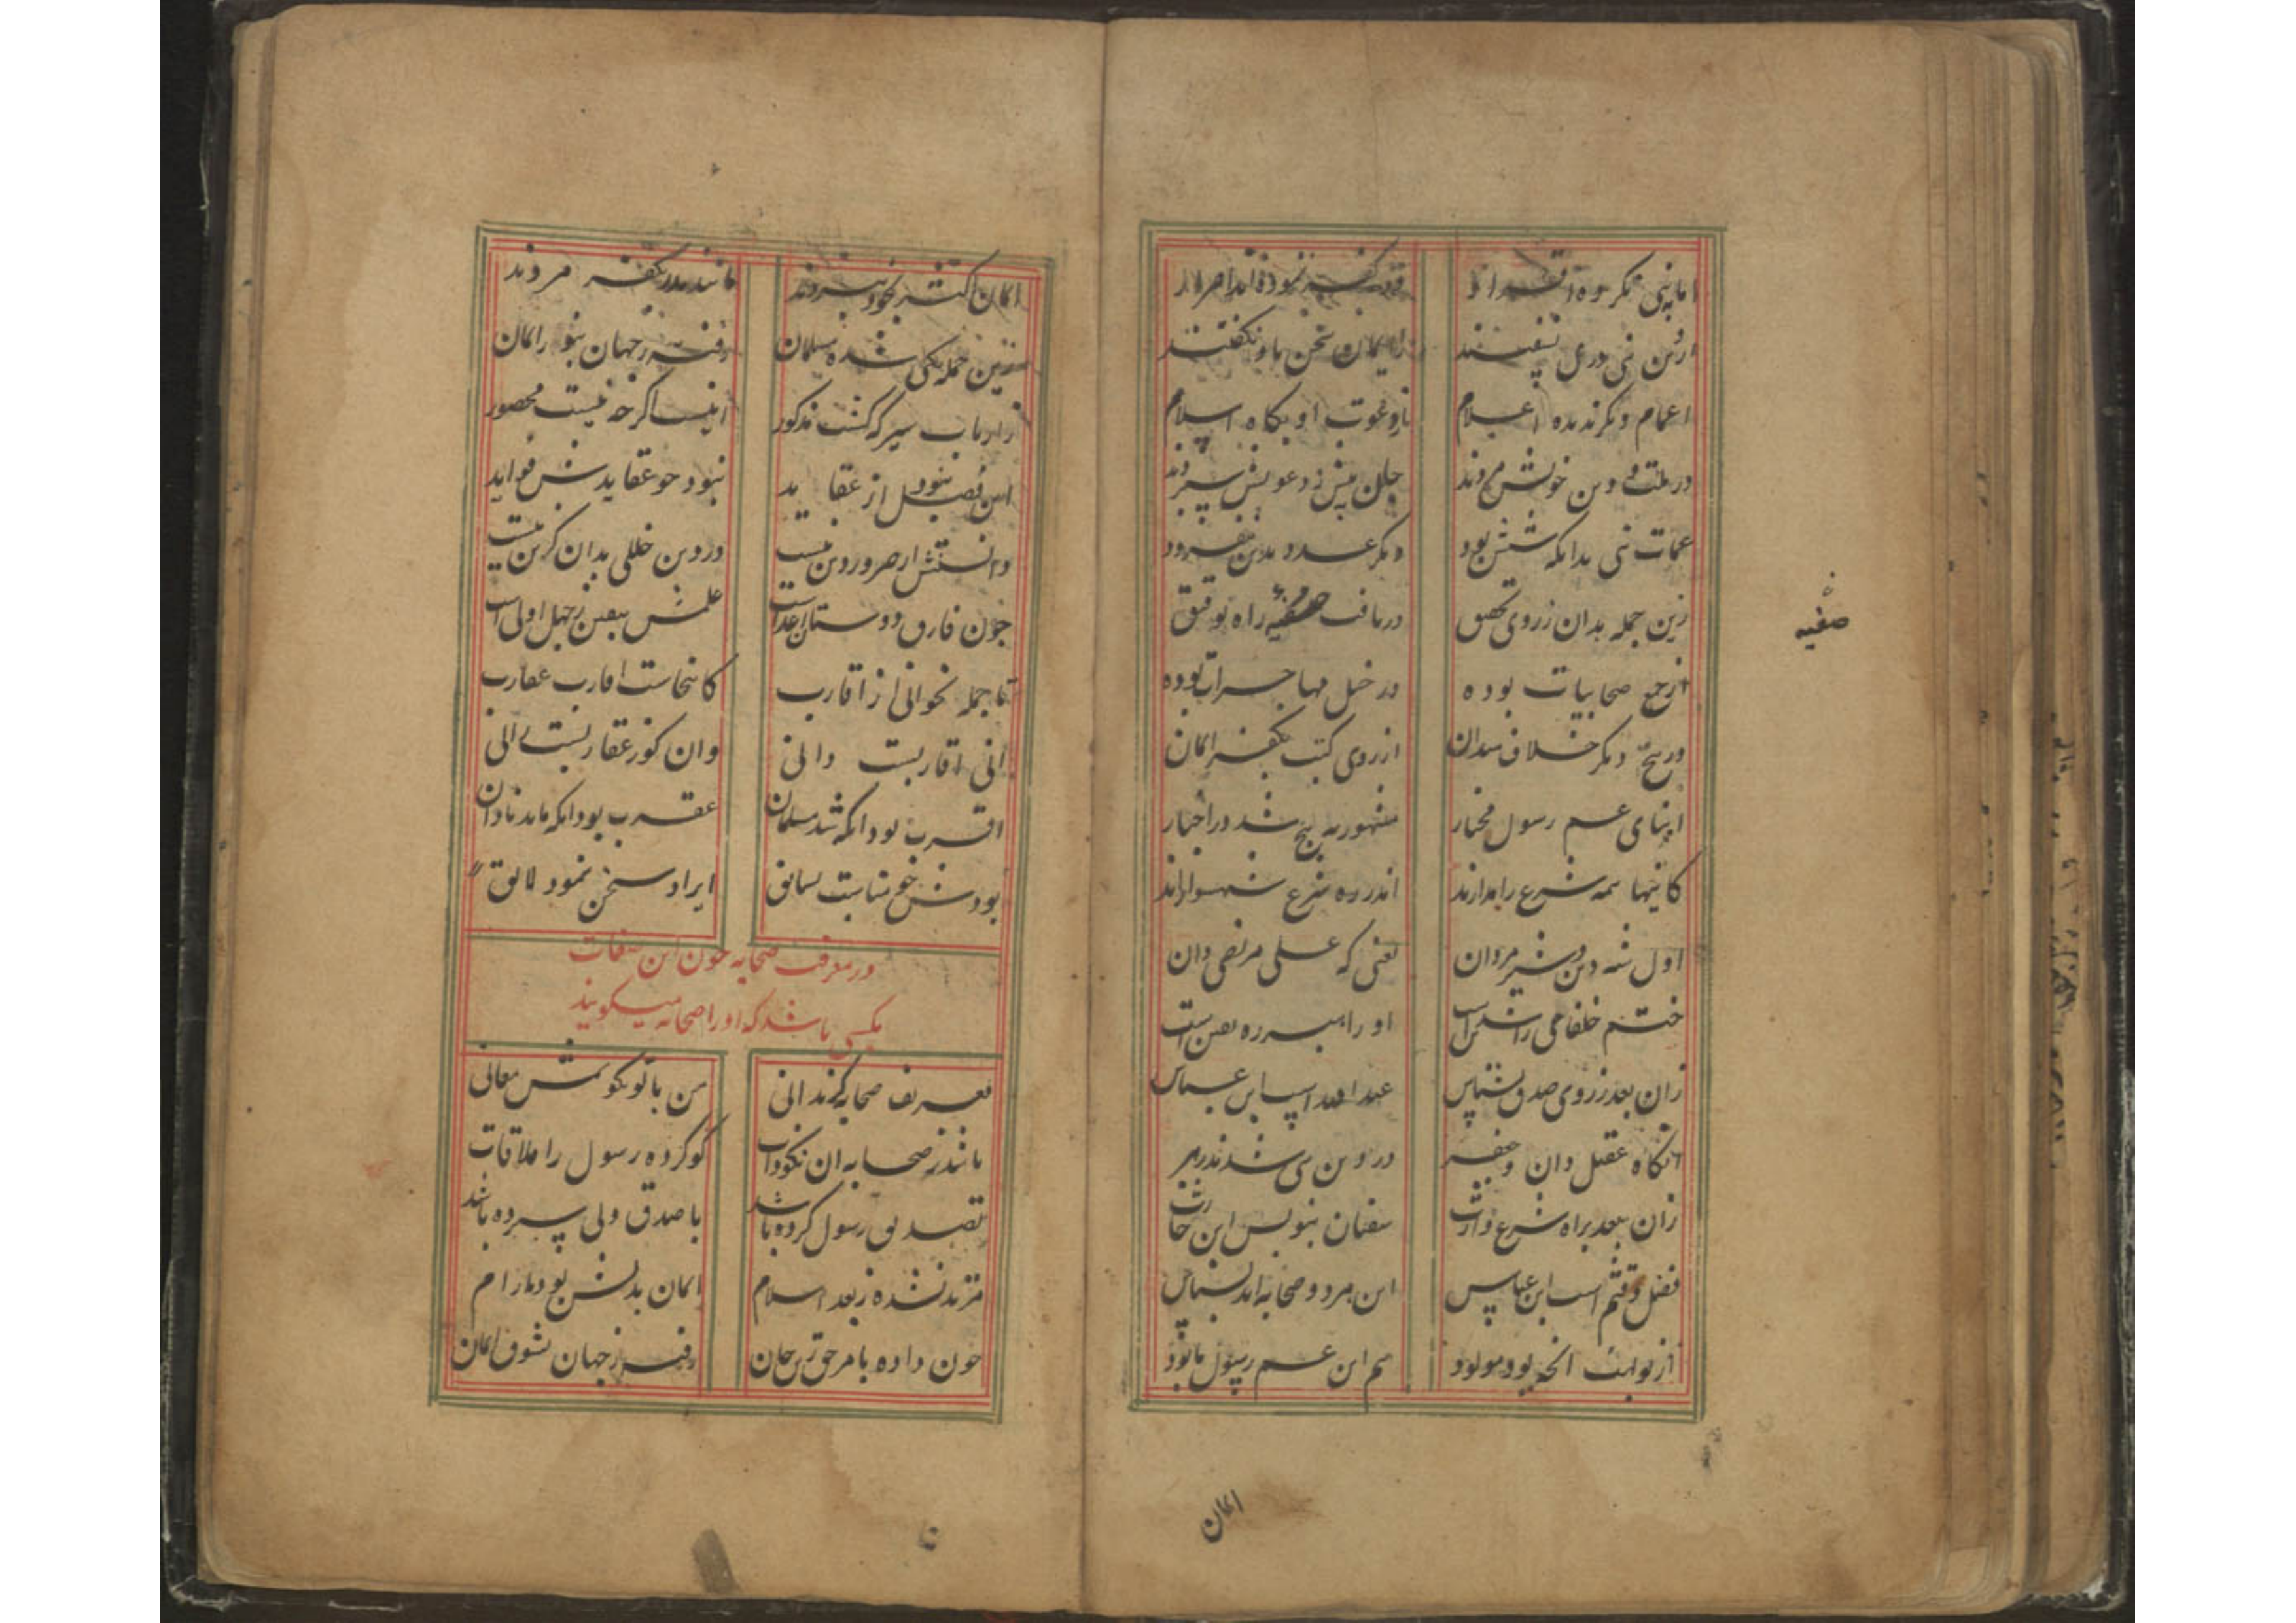 اما به نبی مکرده اقرار
در کفر نموده اند اصرار
از دین نبی دری نسفتند
ز ایمان سخن باو نکفتند
اعمام دکر ندیده اعلام
تا دعوت او بکاه اسلام
در ملت و دین خویش مردند
جان پیش ز دعویش سپردند
عمات نبی بدانکه شش بود
دیکر عدد بدین نیفزود
زین جمله بدان ز روی تحقیق
دریافت صفیه راه توفیق
صفیه
از جمع صحابیات بوده
در خیل مهاجرات بوده
در پنج دکر خلاف میدان
از روی کتب بکفر و ایمان
ابنای عم رسول مختار
مشهور به پنج شد در اخبار
کاینها همه شرع را مدارند
اندر ره شرع شهسوارند
اول شه دین و شیر مردان
یعنی که علی مرتضی دان
ختم خلفای راشدین است
او راهبر ره یقین است
زان بعد ز روی صدق بشناس
عبد الله است ابن عباس
آنکاه عقیل دان و جعفر
در دین بی شدند رهبر
زان بعد براه شرع وارث
سفیان بنویس ابن حارث
فضل و قثم است ابن عباس
این هر دو صحابه اند بشناس
از بولهب آنچه بود مولود
هم ابن عم رسول ما بود
ایمان
ایمان کفته بخود نبردند
ماندند بکفر مردند
زین جمله یکی شده مسلمان
رفته ز جهان بنور ایمان
ز ارباب سیر که کشت مذکور
اینها اکرچه نیست محصور
این فصل نبود از عقاید
نبود چو عقایدش فواید
دانستنش از ضرور دین نیست
در دین خللی بدان کزین نیست
چون فارق دوستان ز اعداست
علمش بیقین ز جهل اولی است
تا جمله نخوانی از اقارب
کانجاست اقارب عقارب
آنی اقاربست دانی
وان کو ز عقاربست رانی
اقرب بود آنکه شد مسلمان
عقرب بود آنکه ماند نادان
بودش چو مناسبت بسابق
ایراد سخن نمود لایق
در معرفت صحابه چون این صفات
بکسی باشد که او را صحابه میکویند
تعریف صحابه کر ندانی
من با تو بکویمش معانی
باشد ز صحابه آن نکوذات
کو کرده رسول را ملاقات
تصدیق رسول کرده باشد
با صدق ولی سپرده باشد
مرتد نشده ز بعد اسلام
ایمان بدلش بود بآرام
چون داده بامر حق ز تن جان
رفته ز جهان بشوق ایمان